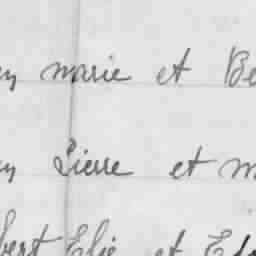 marie et Be
Pierre et m
bert Elie et Ed